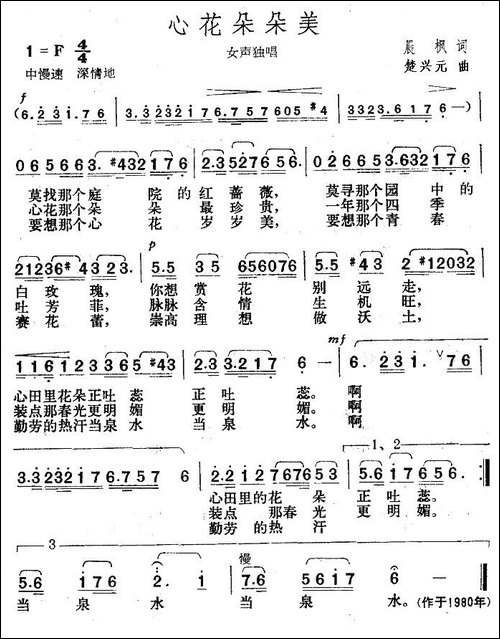 心花朵朵美
1=F 4/4
女声独唱
晨枫 词
中慢速 深情地
楚兴元 曲
f
(6. 2 3 1. 7 6 3. 3 2 3 2 1 7 6 7 6. 7 5 7 6 0 5 #4 3 3 2 3. 6 1 7 6 —)
0 6 5 6 6 3. #4 3 2 1 7 6 2. 3 5 2 7 6 5 6. 0 2 6 6 5 3. 6 3 2 1 7 6
莫找那个庭 院的红蔷薇, 莫寻那个园 中的
心花那个朵 朵 最珍贵, 一年那个四 季
要想那个心 花 岁岁美, 要想那个青 春
p
2 1 2 3 6 #4 3 2 3. 5.5 3 3 6 5 6 0 7 6 5.5 #4 3 2 #1 2 0 3 2
白玫瑰, 你想赏花 别远走,
吐芳菲, 脉脉含情 生机旺,
赛花蕾, 崇高理想 做沃土,
mf
1 1 6 1 2 3 3 6 5 #4 3 2. 3 3. 2 1 7 6 — 6. 2 3 1. V 7 6
心田里花朵正吐蕊 正吐 蕊。啊
装点那春光更明媚 更明 媚。啊
勤劳的热汗当泉水 当泉 水。啊
3. 3 2 3 2 1 7 6. 7 5 7 6 2. 2 1 2 7 6 7 6 5 3 5. 6 1 7 6 5 6.
1、2
心田里的花朵 正吐蕊。
装点 那春光 更明媚。
勤劳的热汗
3
慢
5.6 1 7 6 2. 1 7.6 2 1 5 6 —
当 泉 水 当 泉 水。(作于1980年)